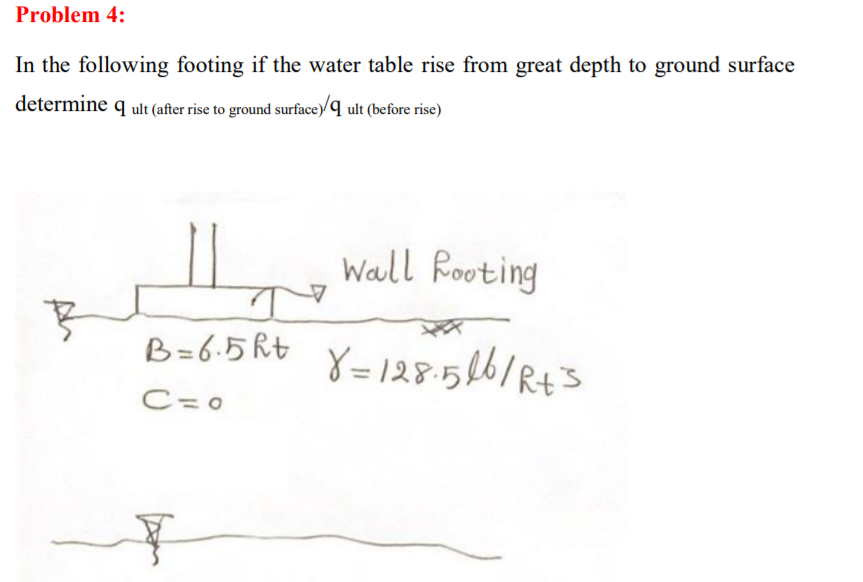 Problem 4:
In the following footing if the water table rise from great depth to ground surface
determine q ult (after rise to ground surface)/q ult (before rise)
Wall footing
B=6.5ft γ=128.5lb/ft3
C=0